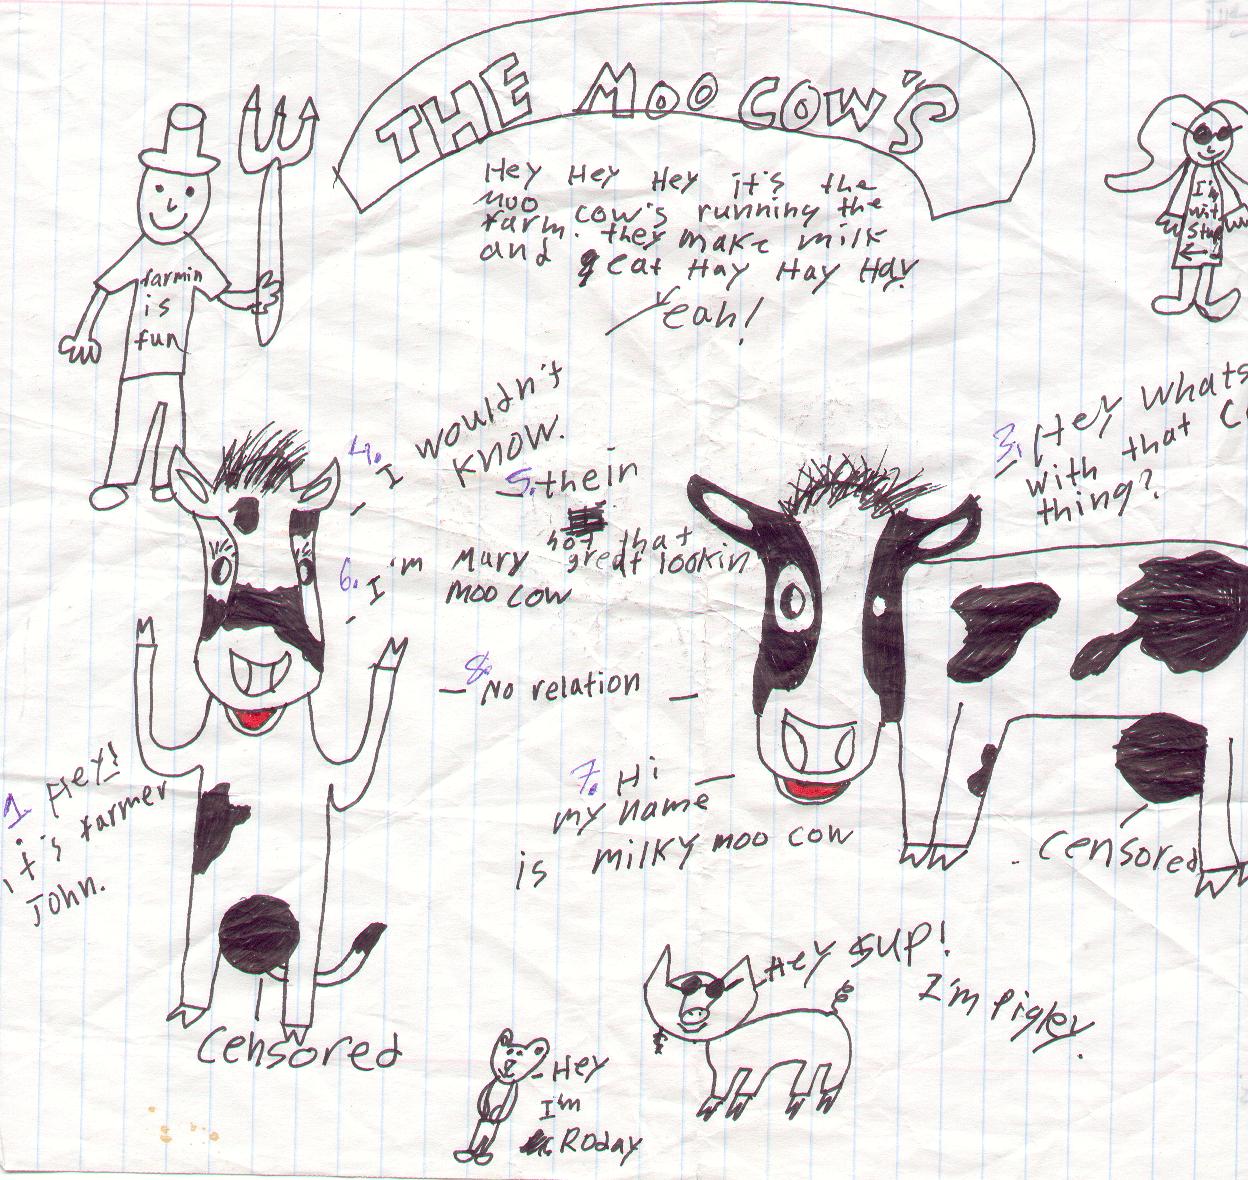 THE MOO COW'S
Hey Hey Hey it's the
moo cow's running the
farm. they make milk
and eat Hay Hay Hay.
Yeah!
farmin
is
fun
I'm
wit
Stup
4. I wouldn't
know.
3. Hey whats
with that
thing?
5. their
not that
great lookin
6. I'm Mary
moo cow
8. No relation
7. Hi
my name
is milky moo cow
1. Hey!
it's farmer
John.
censored
censored
Hey sup!
I'm pigley.
Hey
I'm
Roday